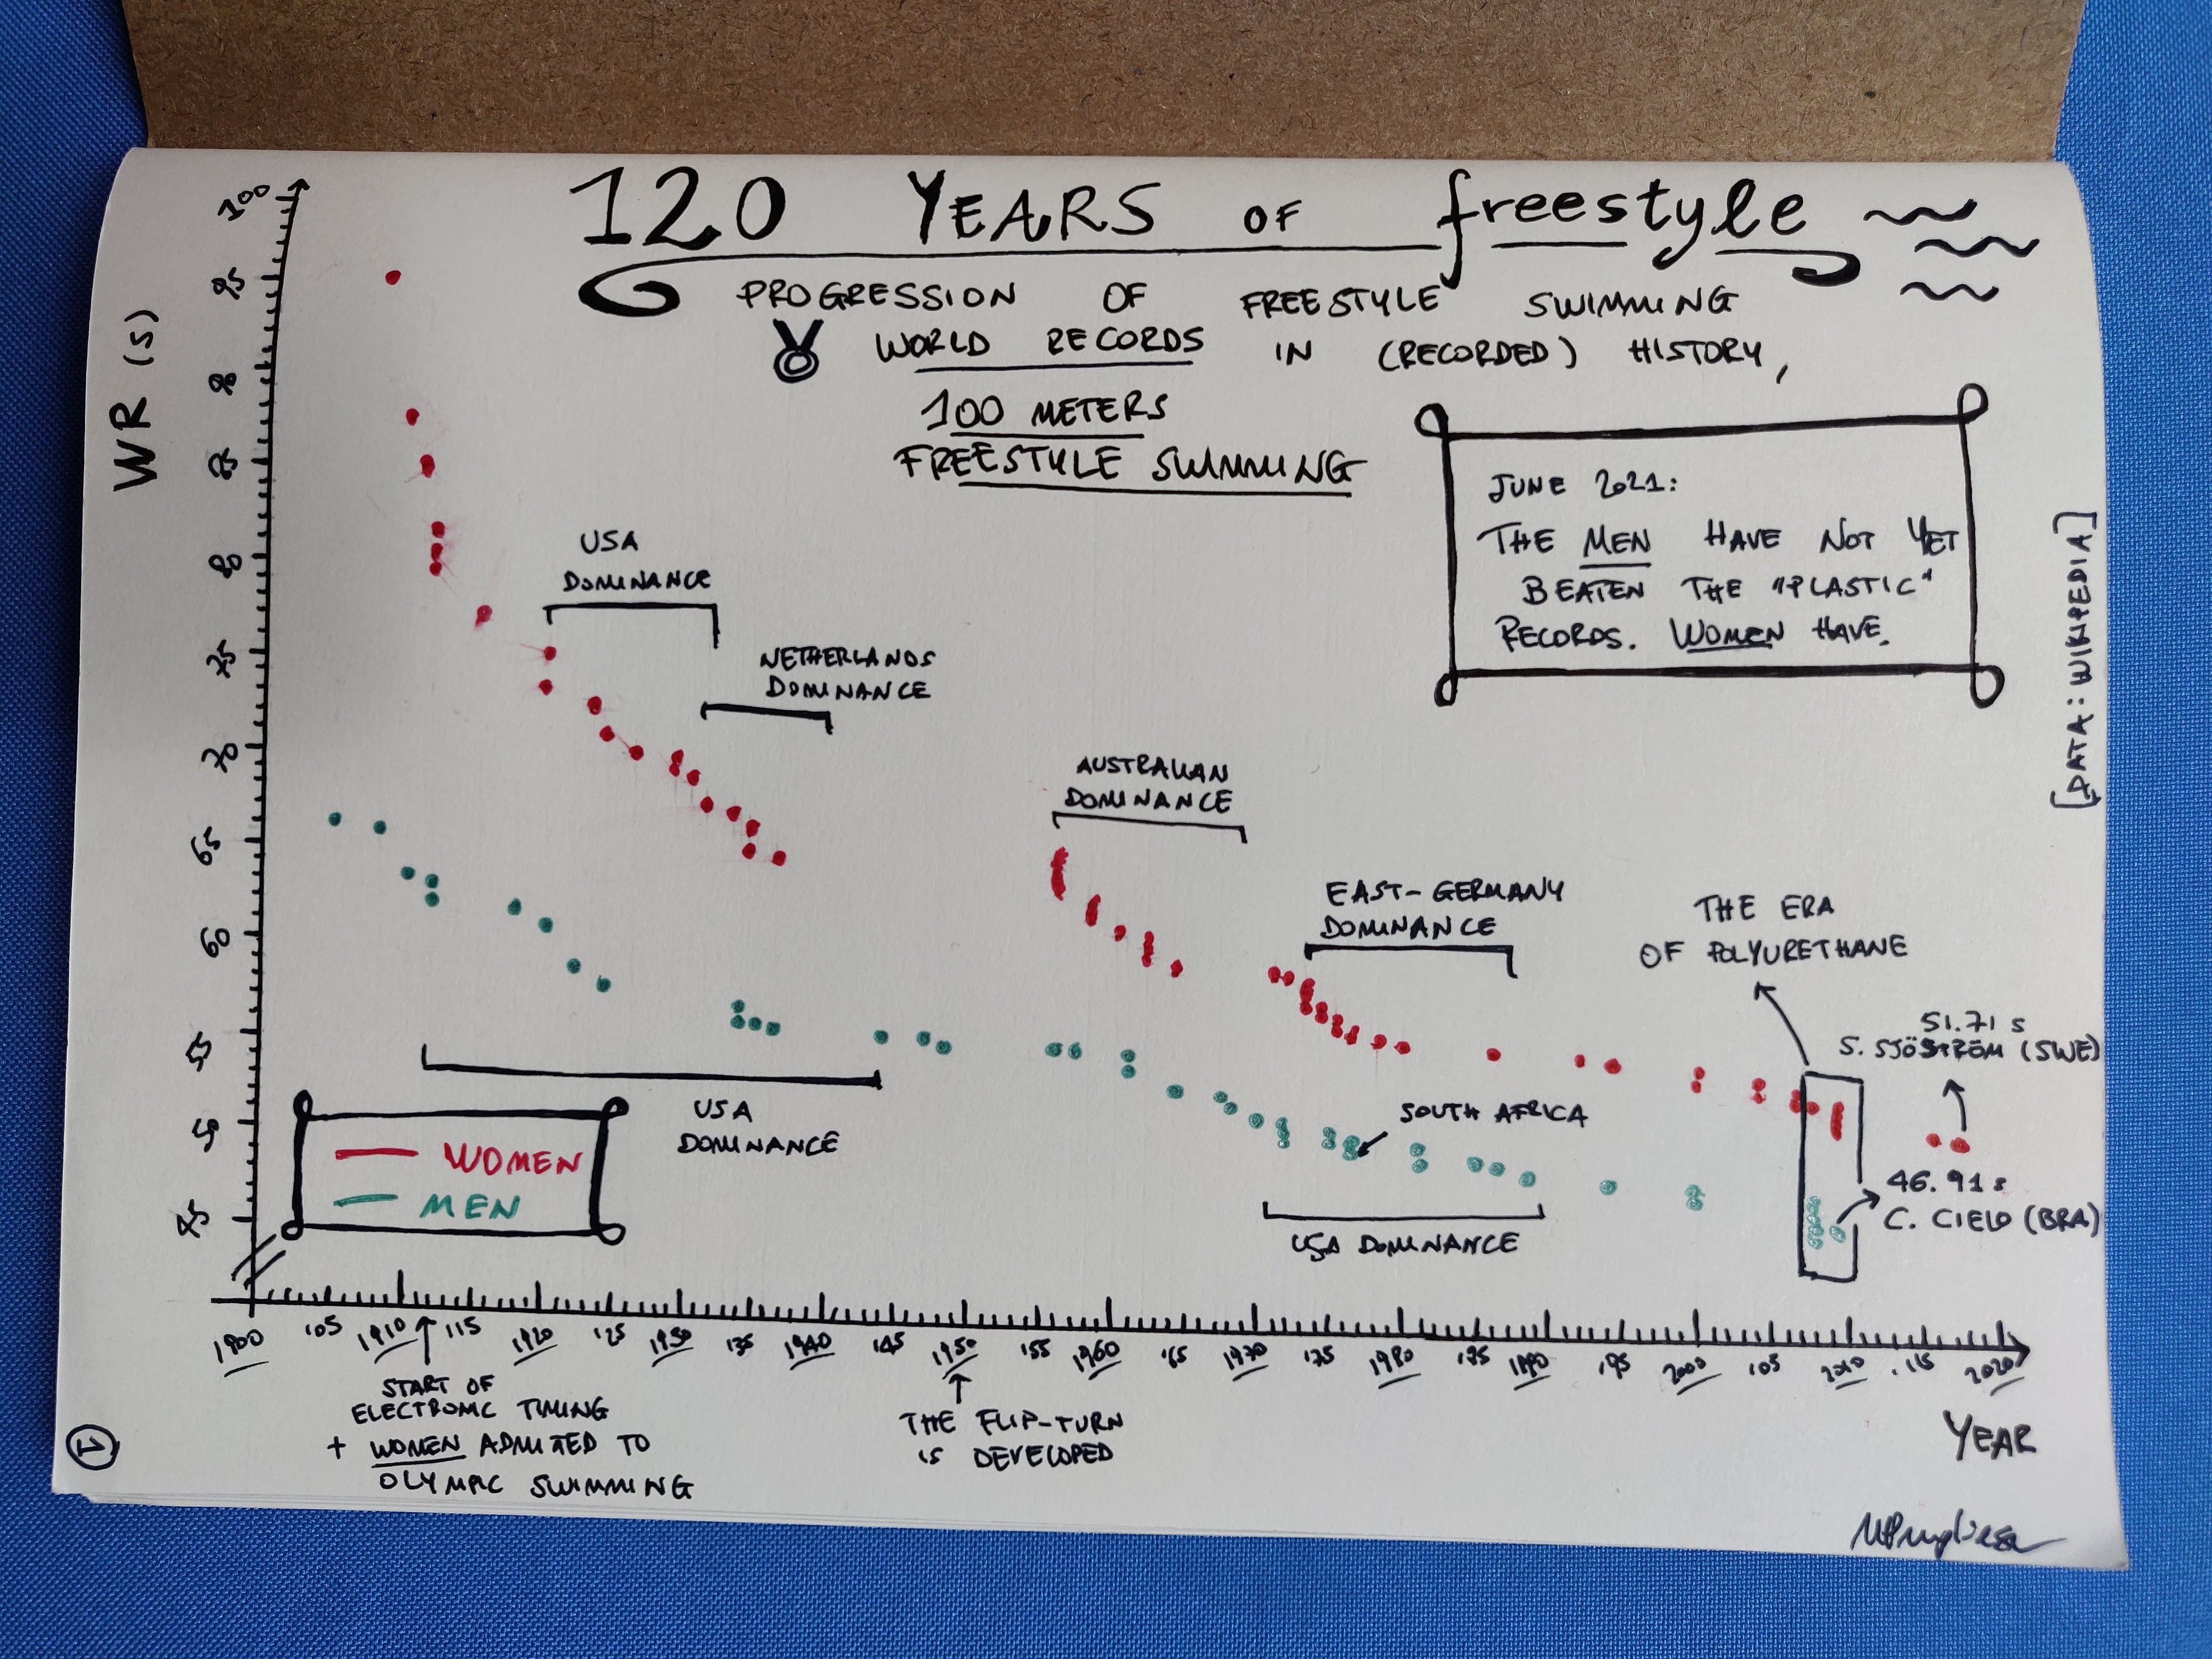 120 YEARS OF freestyle
PROGRESSION OF FREESTYLE SWIMMING
WORLD RECORDS IN (RECORDED) HISTORY,
100 METERS
FREESTYLE SWIMMING
JUNE 2021:
THE MEN HAVE NOT YET
BEATEN THE "PLASTIC"
RECORDS. WOMEN HAVE.
[DATA: WIKIPEDIA]
WR (s)
100
95
90
85
80
75
70
65
60
55
50
45
USA
DOMINANCE
NETHERLANDS
DOMINANCE
AUSTRALIAN
DOMINANCE
EAST-GERMANY
DOMINANCE
THE ERA
OF POLYURETHANE
51.71 s
S. SJÖSTRÖM (SWE)
USA
DOMINANCE
SOUTH AFRICA
46.91 s
C. CIELO (BRA)
USA DOMINANCE
WOMEN
MEN
1900 '05 1910 '15 1920 '25 1930 '35 1940 '45 1950 '55 1960 '65 1970 '75 1980 '85 1990 '95 2000 '05 2010 '15 2020
START OF
ELECTRONIC TIMING
+ WOMEN ADMITTED TO
OLYMPIC SWIMMING
THE FLIP-TURN
IS DEVELOPED
YEAR
1